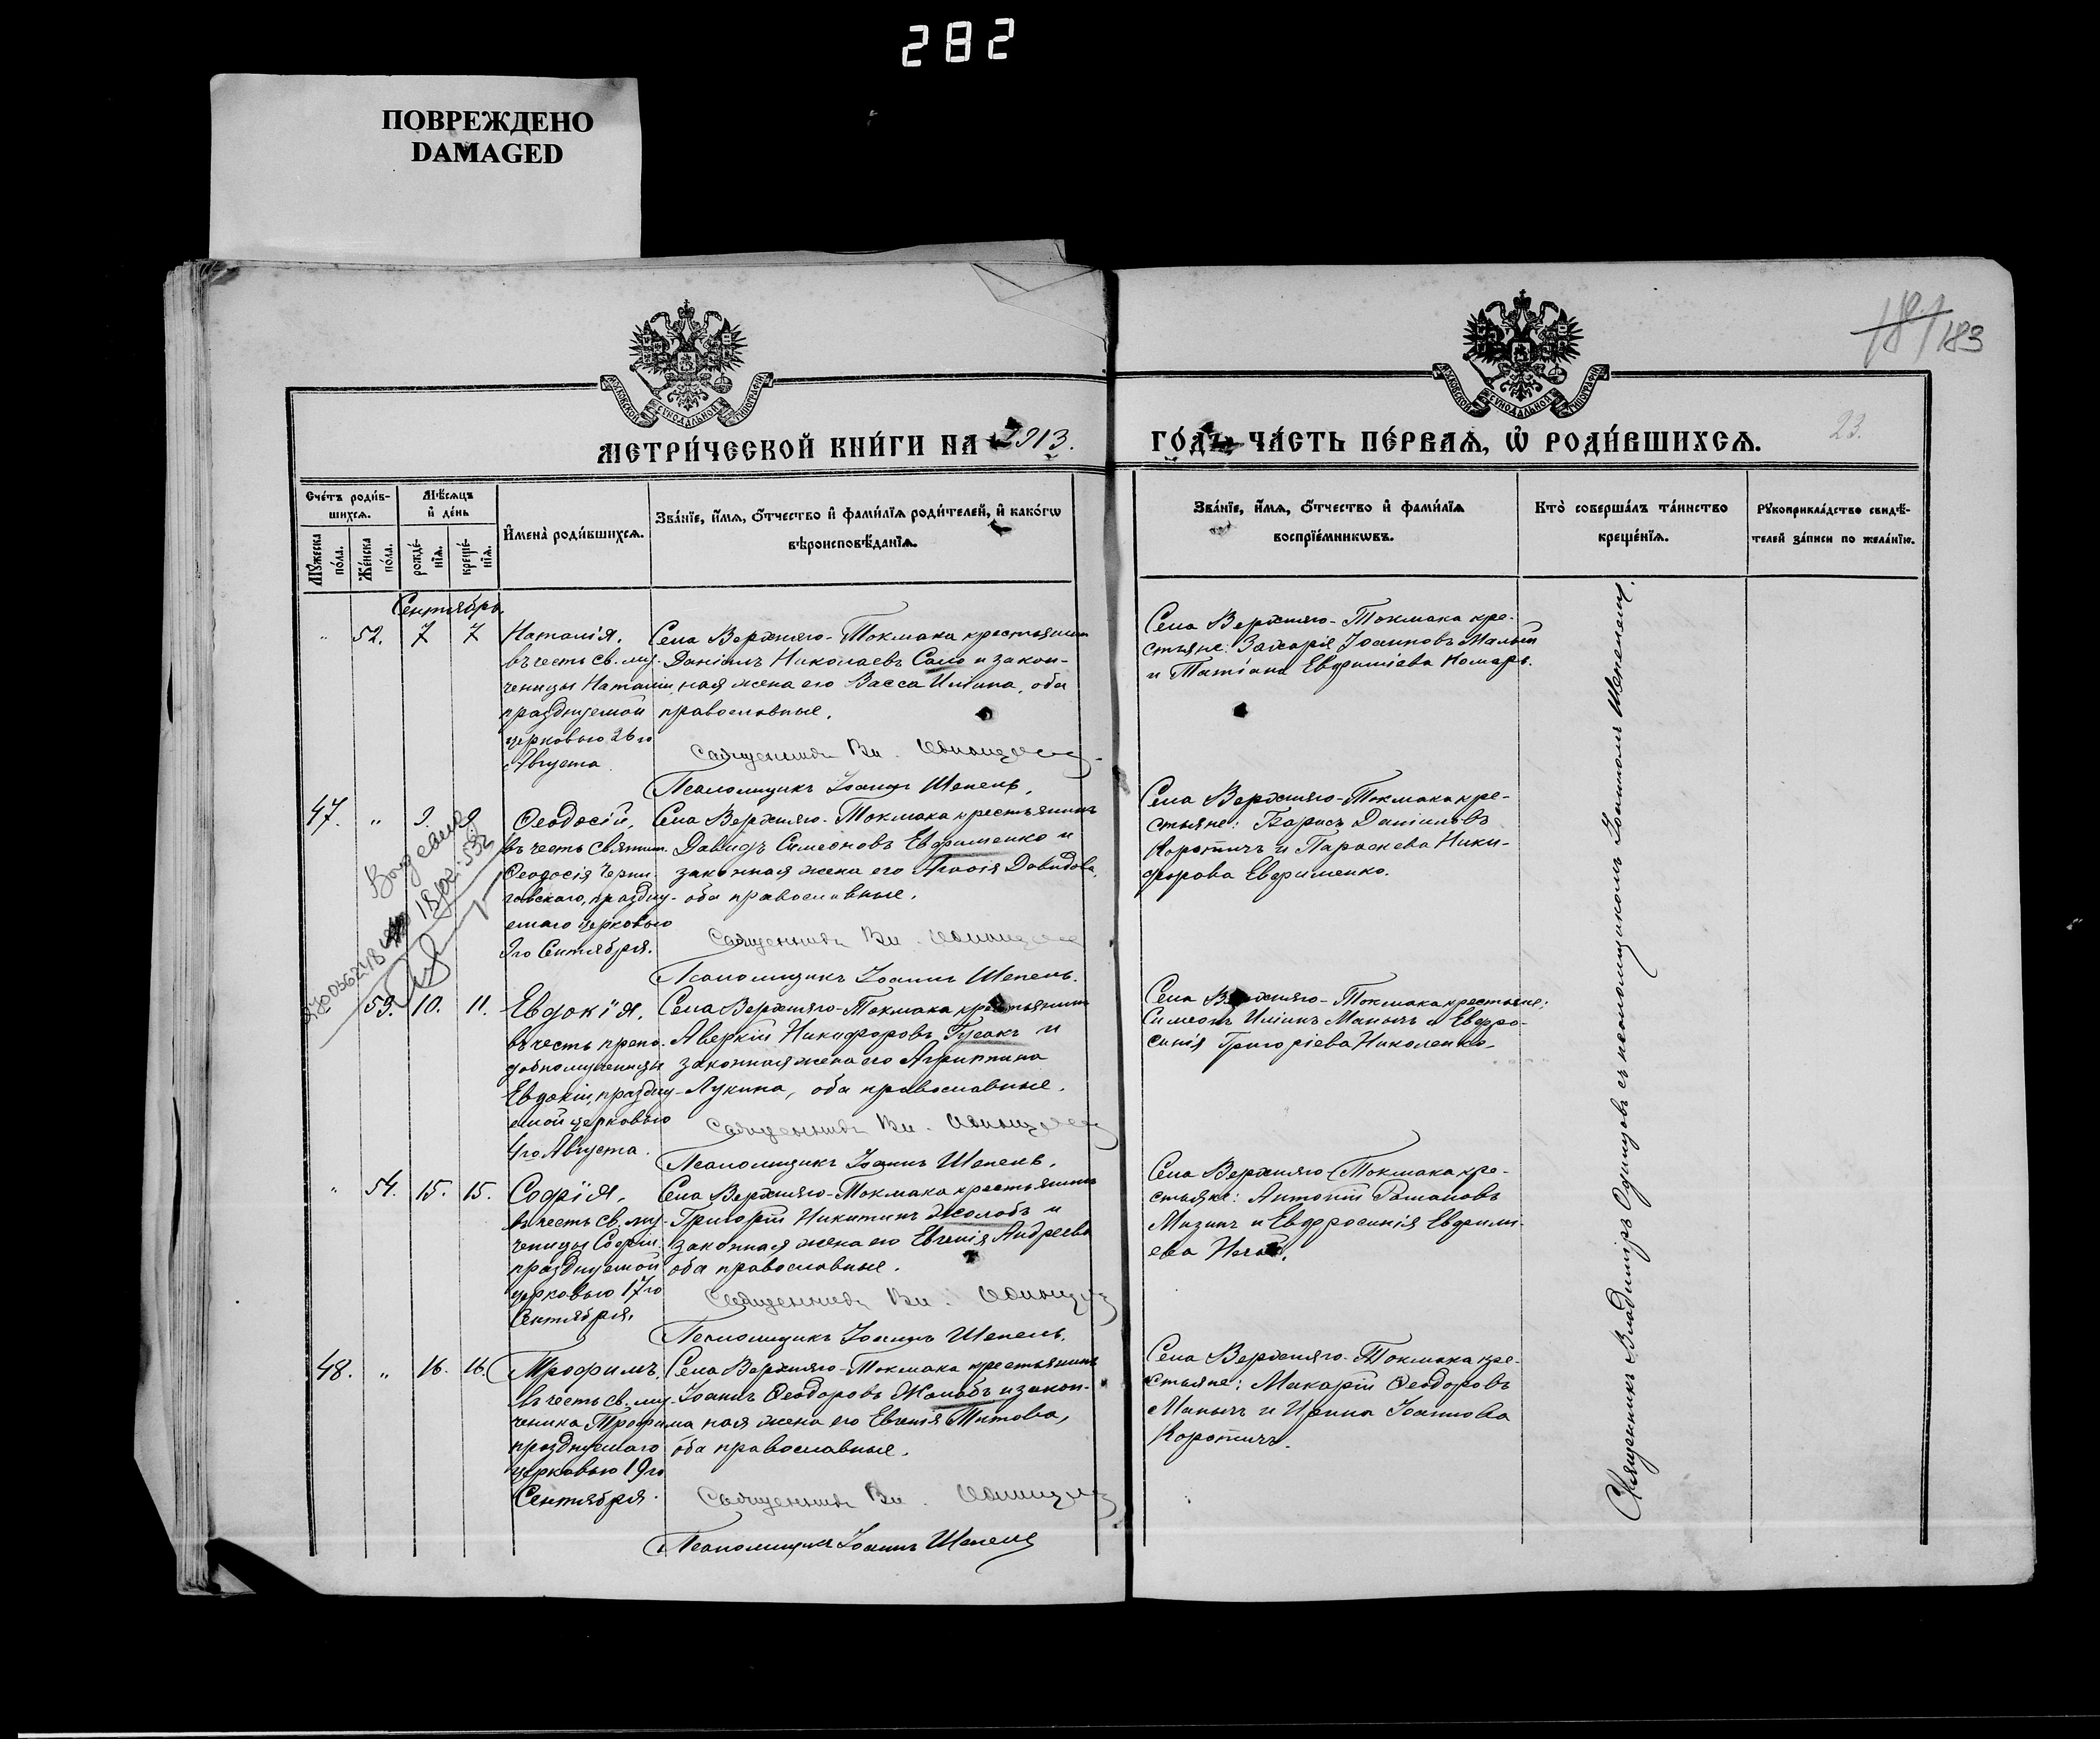 282
ПОВРЕЖДЕНО
DAMAGED
181 183
23.
МЕТРИ́ЧЕСКОЙ КНИ́ГИ НА 1913.
ГО́ДЪ ЧА́СТЬ ПЕ́РВАѦ, Ѡ҆ РОДИ́ВШИХСѦ.
Сче́тъ роди́в-
шихсѧ.
Мꙋ́жеска по́ла.
Же́нска по́ла.
Мѣ́сѧцъ
и҆ де́нь
рожде́-
нїѧ.
креще́-
нїѧ.
И҆мена̀ роди́вшихсѧ.
Зва́нїе, и҆́мѧ, ѻ҆́тчество и҆ фами́лїѧ роди́телей, и҆ како́гѡ
вѣроисповѣ́данїѧ.
Зва́нїе, и҆́мѧ, ѻ҆́тчество и҆ фами́лїѧ
воспрїе́мникѡвъ.
Кто̀ соверша́лъ та́инство
креще́нїѧ.
Рꙋкоприкла́дство свидѣ́-
телей за́писи по жела́нїю.
Сентябрь.
" 52. 7 7
Наталія.
въ честь св. му-
ченицы Наталіи,
празднуемой
церковью 26го
Августа.
Села Верхняго-Токмака крестьянинъ
Даніилъ Николаевъ Сало и закон-
ная жена его Васса Иліина, оба
православные.
Священникъ Вл. Одинцовъ
Псаломщикъ Іоаннъ Шепель.
Села Верхняго-Токмака кре-
стьяне: Захарія Іоанновъ Малый
и Татіана Евфиміева Комаръ.
47. " 9. 9.
Ѳеодосій,
въ честь святит.
Ѳеодосія Черни-
говскаго, праздну-
емаго церковью
9го Сентября.
Села Верхняго-Токмака крестьянинъ
Давидъ Симеоновъ Евфименко и
законная жена его Агаѳія Давидова,
оба православные.
Священникъ Вл. Одинцовъ
Псаломщикъ Іоаннъ Шепель.
Села Верхняго-Токмака кре-
стьяне: Борисъ Даніиловъ
Коротичъ и Параскева Ники-
форова Евфименко.
53. 10. 11.
Евдокія,
въ честь препо-
добномученицы
Евдокіи, праздну-
емой церковью
4го Августа.
Села Верхняго-Токмака крестьянинъ
Аверкій Никифоровъ Гусакъ и
законная жена его Агриппина
Лукина, оба православные.
Священникъ Вл. Одинцовъ
Псаломщикъ Іоаннъ Шепель.
Села Верхняго-Токмака крестьяне:
Симеонъ Иліинъ Манычъ и Евфро-
синія Григоріева Николенко.
" 54. 15. 15.
Софія,
въ честь св. му-
ченицы Софіи,
празднуемой
церковью 17го
Сентября.
Села Верхняго-Токмака крестьянинъ
Григорій Никитинъ Жолобъ и
законная жена его Евгенія Андреева
оба православные.
Священникъ Вл. Одинцовъ
Псаломщикъ Іоаннъ Шепель.
Села Верхняго-Токмака кре-
стьяне: Антоній Романовъ
Мизинъ и Евфросинія Евфими-
ева
48. " 16. 16.
Трофимъ,
въ честь св. му-
ченика Трофима
празднуемаго
церковью 19го
Сентября.
Села Верхняго-Токмака крестьянинъ
Іоаннъ Ѳеодоровъ Жолобъ и закон-
ная жена его Евгенія Титова,
оба православные.
Священникъ Вл. Одинцовъ
Псаломщикъ Іоаннъ Шепель
Села Верхняго-Токмака кре-
стьяне: Макарій Ѳеодоровъ
Манычъ и Ирина Іоаннова
Коротичъ.
Священникъ Владиміръ Одинцовъ съ псаломщикомъ Іоанномъ Шепелемъ.